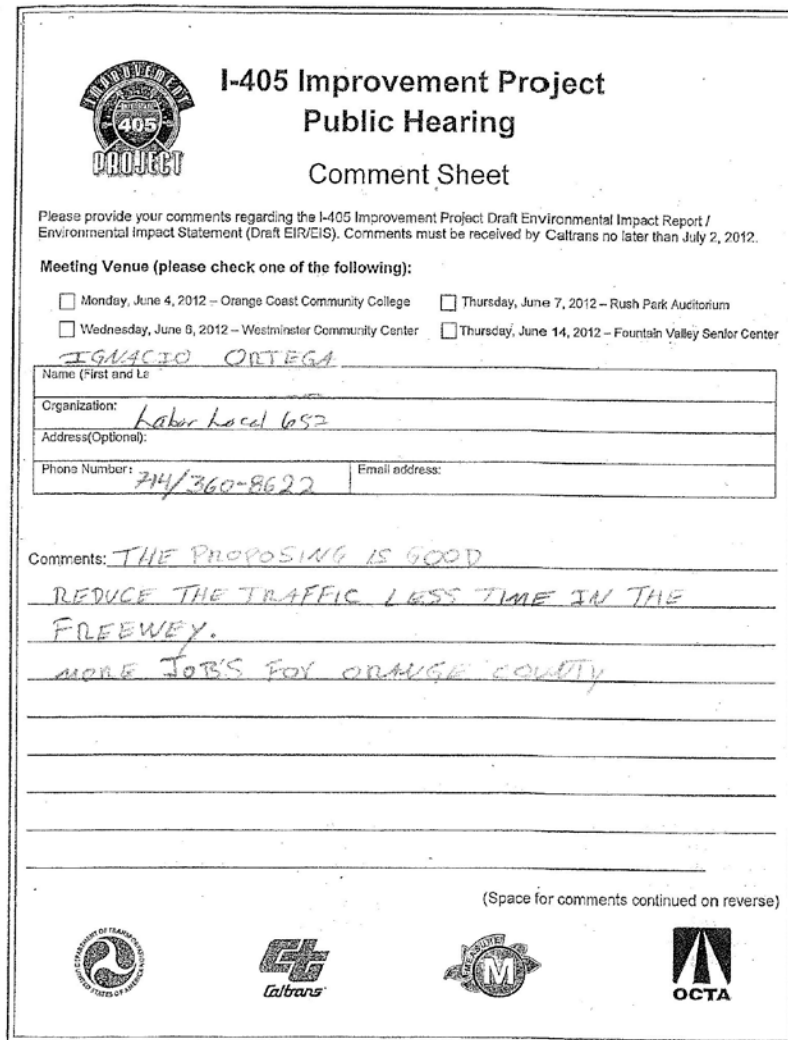 IMPROVEMENT
INTERSTATE
405
PROJECT
I-405 Improvement Project
Public Hearing
Comment Sheet
Please provide your comments regarding the I-405 Improvement Project Draft Environmental Impact Report /
Environmental Impact Statement (Draft EIR/EIS). Comments must be received by Caltrans no later than July 2, 2012.
Meeting Venue (please check one of the following):
Monday, June 4, 2012 – Orange Coast Community College
Thursday, June 7, 2012 – Rush Park Auditorium
Wednesday, June 6, 2012 – Westminster Community Center
Thursday, June 14, 2012 – Fountain Valley Senior Center
IGNACIO ORTEGA
Name (First and La
Organization: Labor Local 652
Address(Optional):
Phone Number: 714/360-8622
Email address:
Comments: THE PROPOSING IS GOOD
REDUCE THE TRAFFIC LESS TIME IN THE
FREEWEY.
MORE JOB'S FOR ORANGE COUNTY
(Space for comments continued on reverse)
DEPARTMENT OF TRANSPORTATION
UNITED STATES OF AMERICA
Caltrans
MEASURE
M
OCTA